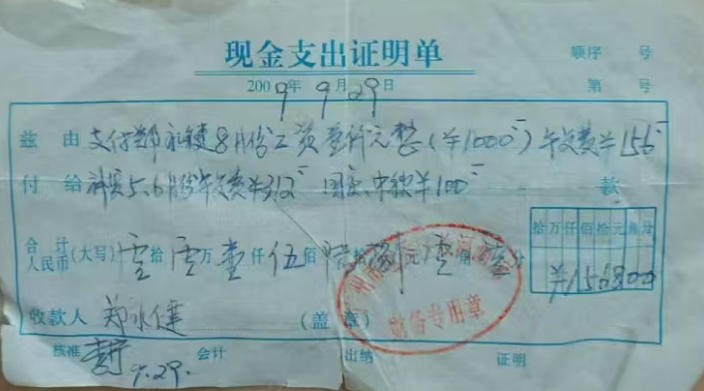 现金支出证明单
顺序 号
2009年9月29日
第 号
兹由 支付郑永健8月份工资壹仟元整(¥1000-)午餐费¥156-
付给 补贴5、6月份午餐费¥312- 国庆、中秋¥100-
款
拾万仟佰拾元角分
合计人民币(大写)零拾零万壹仟伍佰陆拾捌元零角零分
¥156800
收款人 郑永健 (盖章)
财务专用章
核准 9.29. 会计 出纳 证明